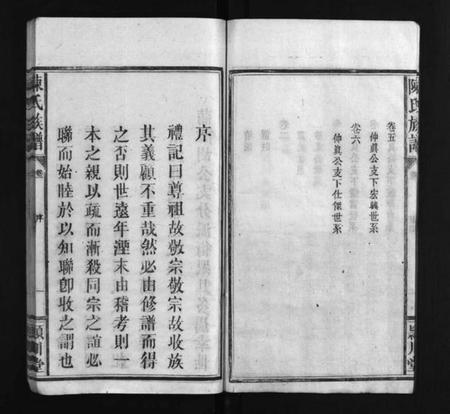 陳氏族譜
卷五
仲眞公支下宏興世系
卷六
仲眞公支下仕傑世系
序
禮記曰尊祖故敬宗敬宗故收族
其義顧不重哉然必由修譜而得
之否則世遠年湮末由稽考則一
本之親以疏而漸殺同宗之誼必
聯而始睦於以知聯卽收之謂也
陳氏族譜
卷
序
潁川堂